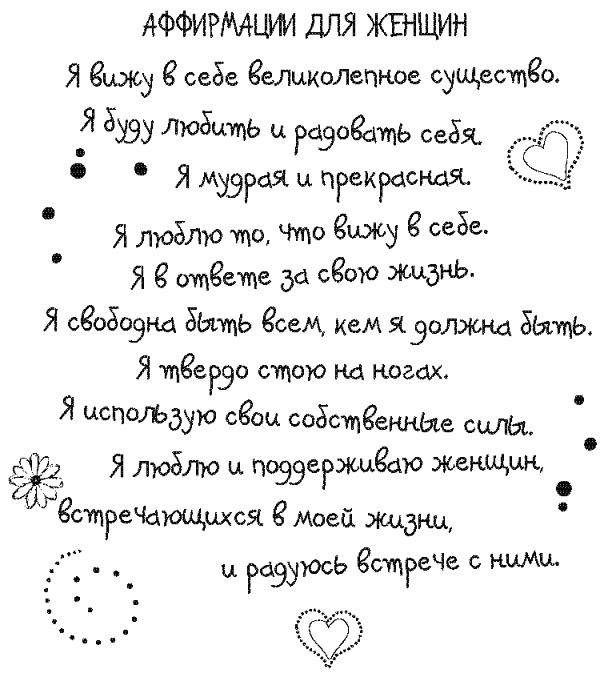 АФФИРМАЦИИ ДЛЯ ЖЕНЩИН
Я вижу в себе великолепное существо.
Я буду любить и радовать себя.
Я мудрая и прекрасная.
Я люблю то, что вижу в себе.
Я в ответе за свою жизнь.
Я свободна быть всем, кем я должна быть.
Я твердо стою на ногах.
Я использую свои собственные силы.
Я люблю и поддерживаю женщин,
встречающихся в моей жизни,
и радуюсь встрече с ними.